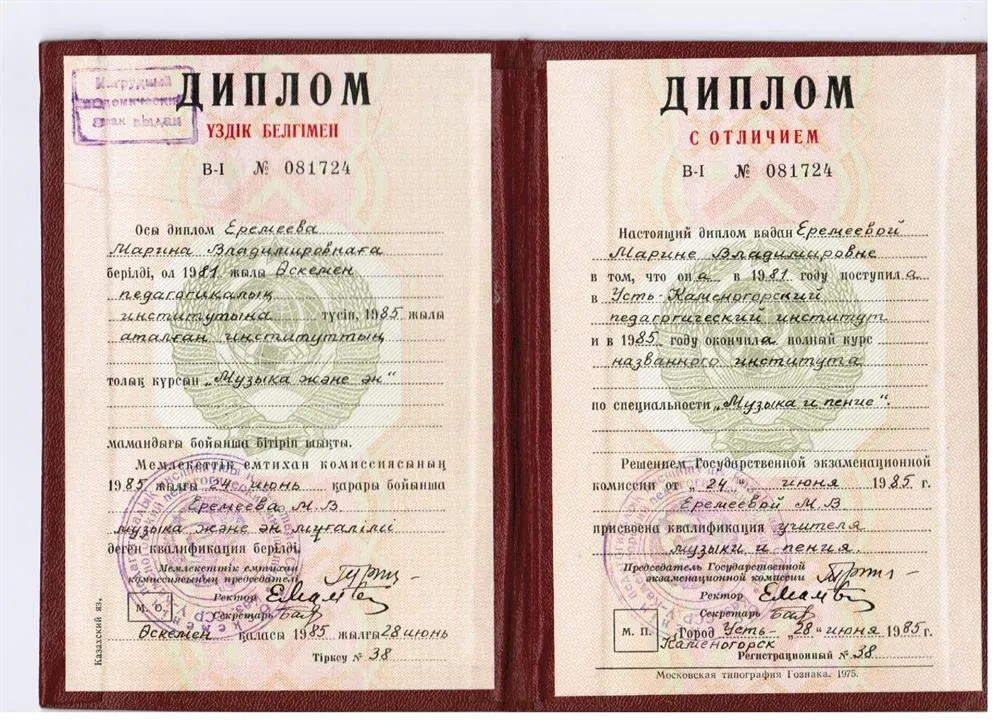 Нагрудный
академический
знак выдан
ДИПЛОМ
ҮЗДІК БЕЛГІМЕН
В-I № 081724
Осы диплом Еремеева
Марина Владимировнаға
берілді, ол 1981 жылы Өскемен
педагогикалық
институтына түсіп, 1985 жылы
аталған институттың
толық курсын „Музыка және ән“
мамандығы бойынша бітіріп шықты.
Мемлекеттік емтихан комиссиясының
1985 жылғы 24 июнь қарары бойынша
Еремеева М.В
музыка және ән мұғалімі
деген квалификация берілді.
Мемлекеттік емтихан
комиссиясының председателі
Ректор
Секретарь
М. О.
Өскемен қаласы 1985 жылғы 28 июнь
Тіркеу № 38
Казахский яз.
ДИПЛОМ
С ОТЛИЧИЕМ
В-I № 081724
Настоящий диплом выдан Еремеевой
Марине Владимировне
в том, что она в 1981 году поступила
в Усть-Каменогорский
педагогический институт
и в 1985 году окончила полный курс
названного института
по специальности „Музыка и пение“.
Решением Государственной экзаменационной
комиссии от „24“ июня 1985 г.
Еремеевой М.В
присвоена квалификация учителя
музыки и пения.
Председатель Государственной
экзаменационной комиссии
Ректор
Секретарь
М. П.
Город Усть- „28“ июня 1985 г.
Каменогорск
Регистрационный № 38
Московская типография Гознака. 1975.